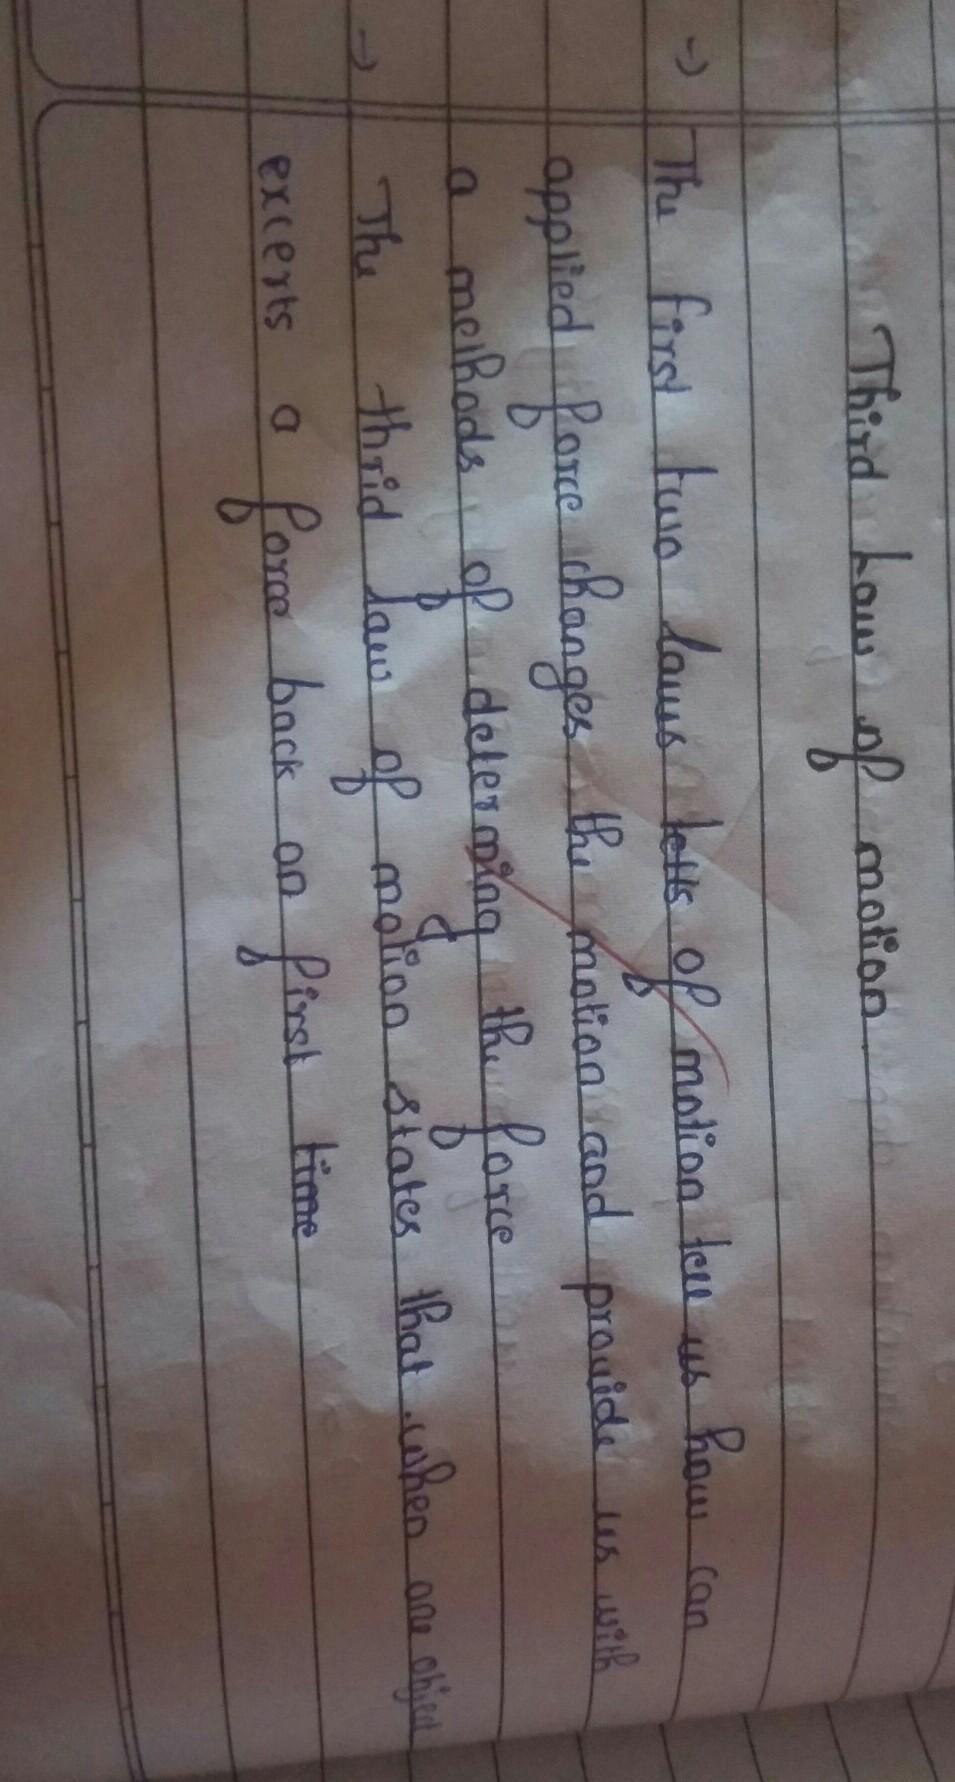 Third Law of motion
-) The first two laws tells of motion tell us how can
applied force changes the motion and provide us with
a methods of determing the force
-) The thrid law of motion states that when one object
excerts a force back on first time